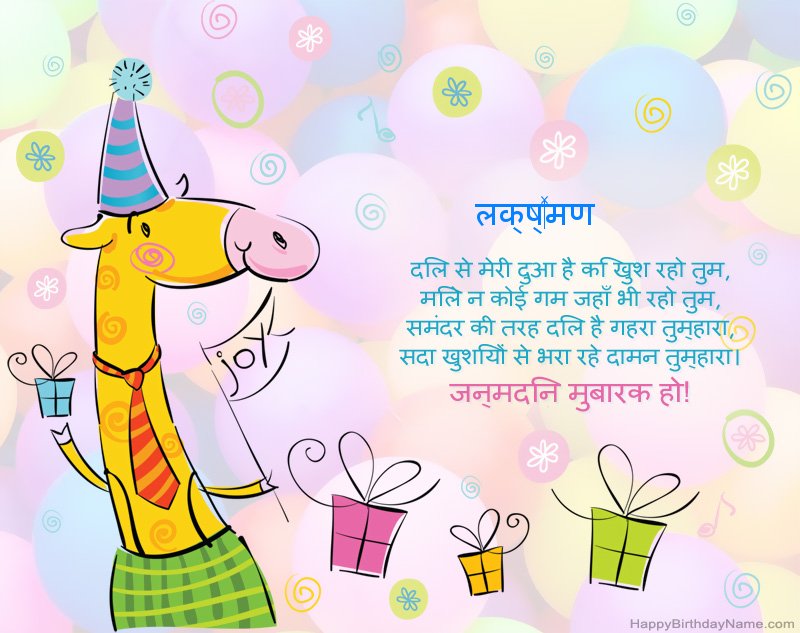 लक्ष्मण
दलि से मेरी दुआ है कि खुश रहो तुम,
मलिे न कोई गम जहाँ भी रहो तुम,
समंदर की तरह दलि है गहरा तुम्हारा,
सदा खुशयिों से भरा रहे दामन तुम्हारा।
जन्मदनि मुबारक हो!
joy
HappyBirthdayName.com